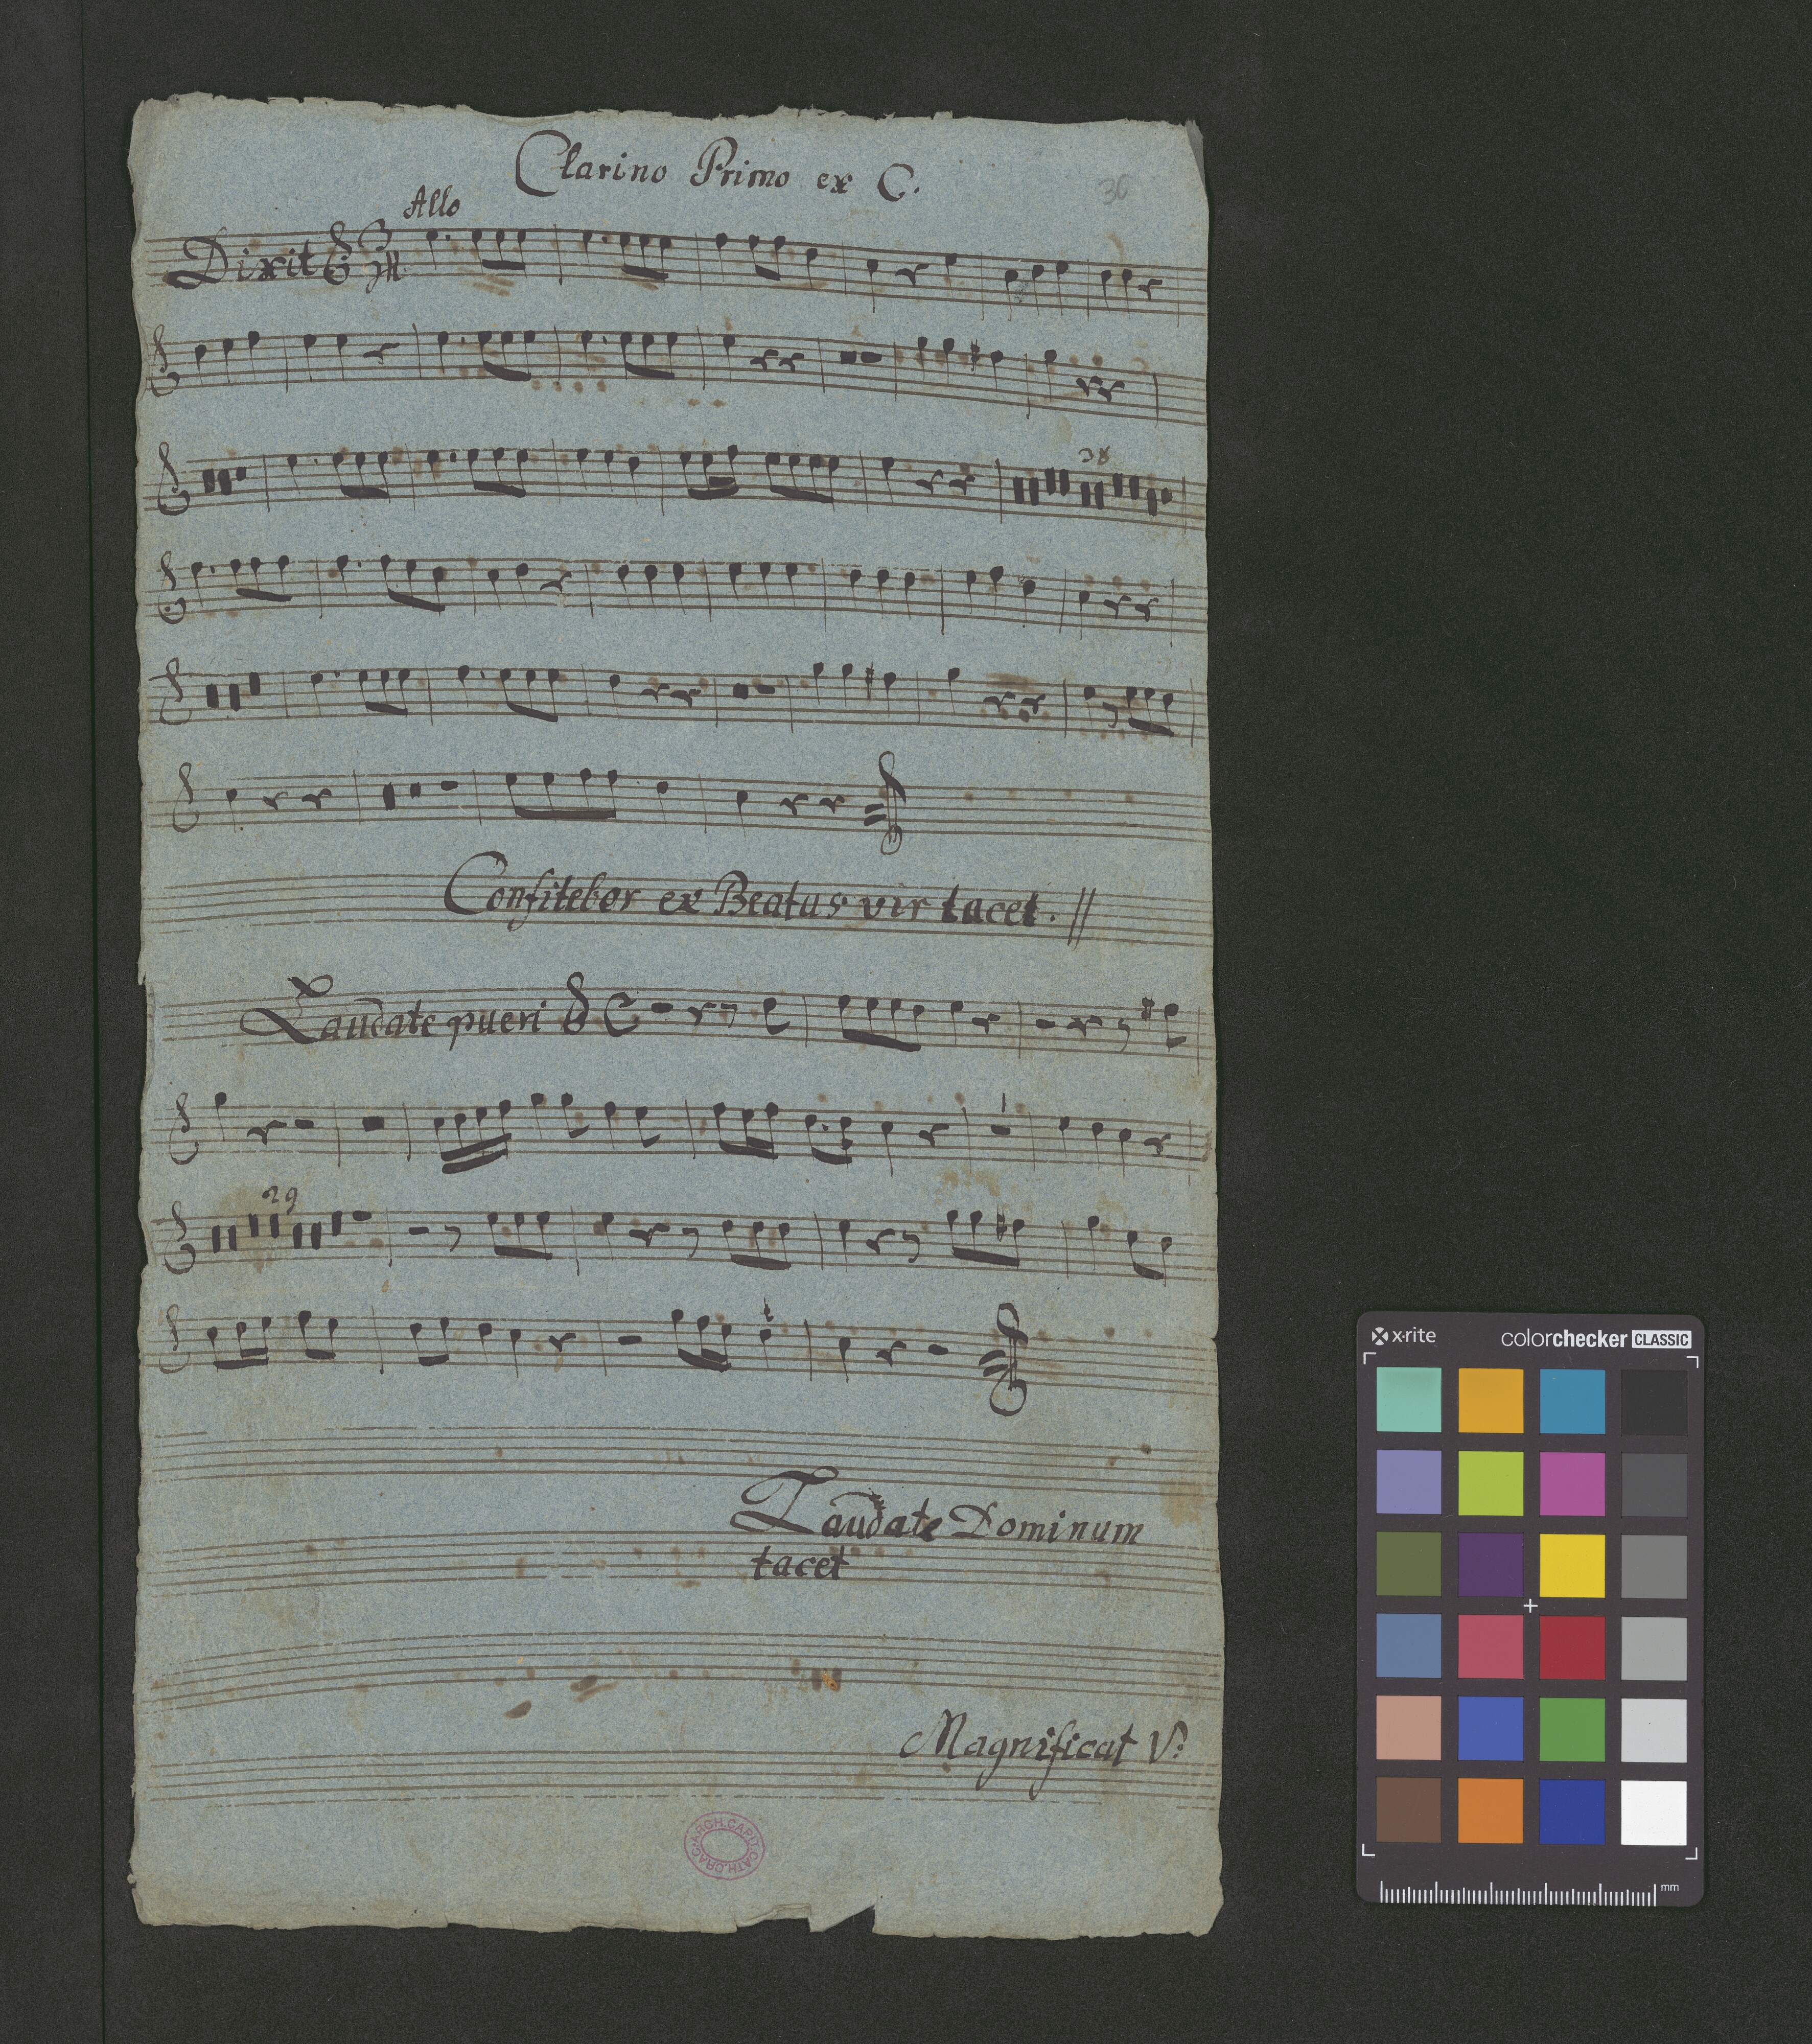 Clarino Primo ex C.
36
Allo
Dixit 3
38
Confitebor ex Beatus vir tacet. //
Laudate pueri C
29
Laudate Dominum
tacet
Magnificat V:
ARCH.CAPIT.CATH.CRAC.
x-rite
colorchecker CLASSIC
mm